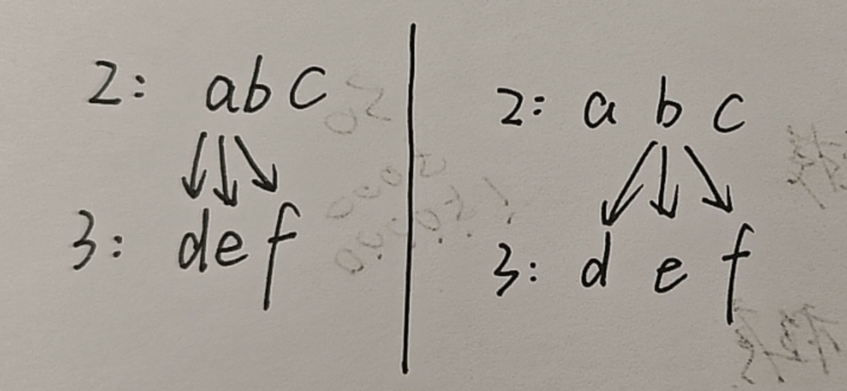 2: abc
3: def
2: a b c
3: d e f